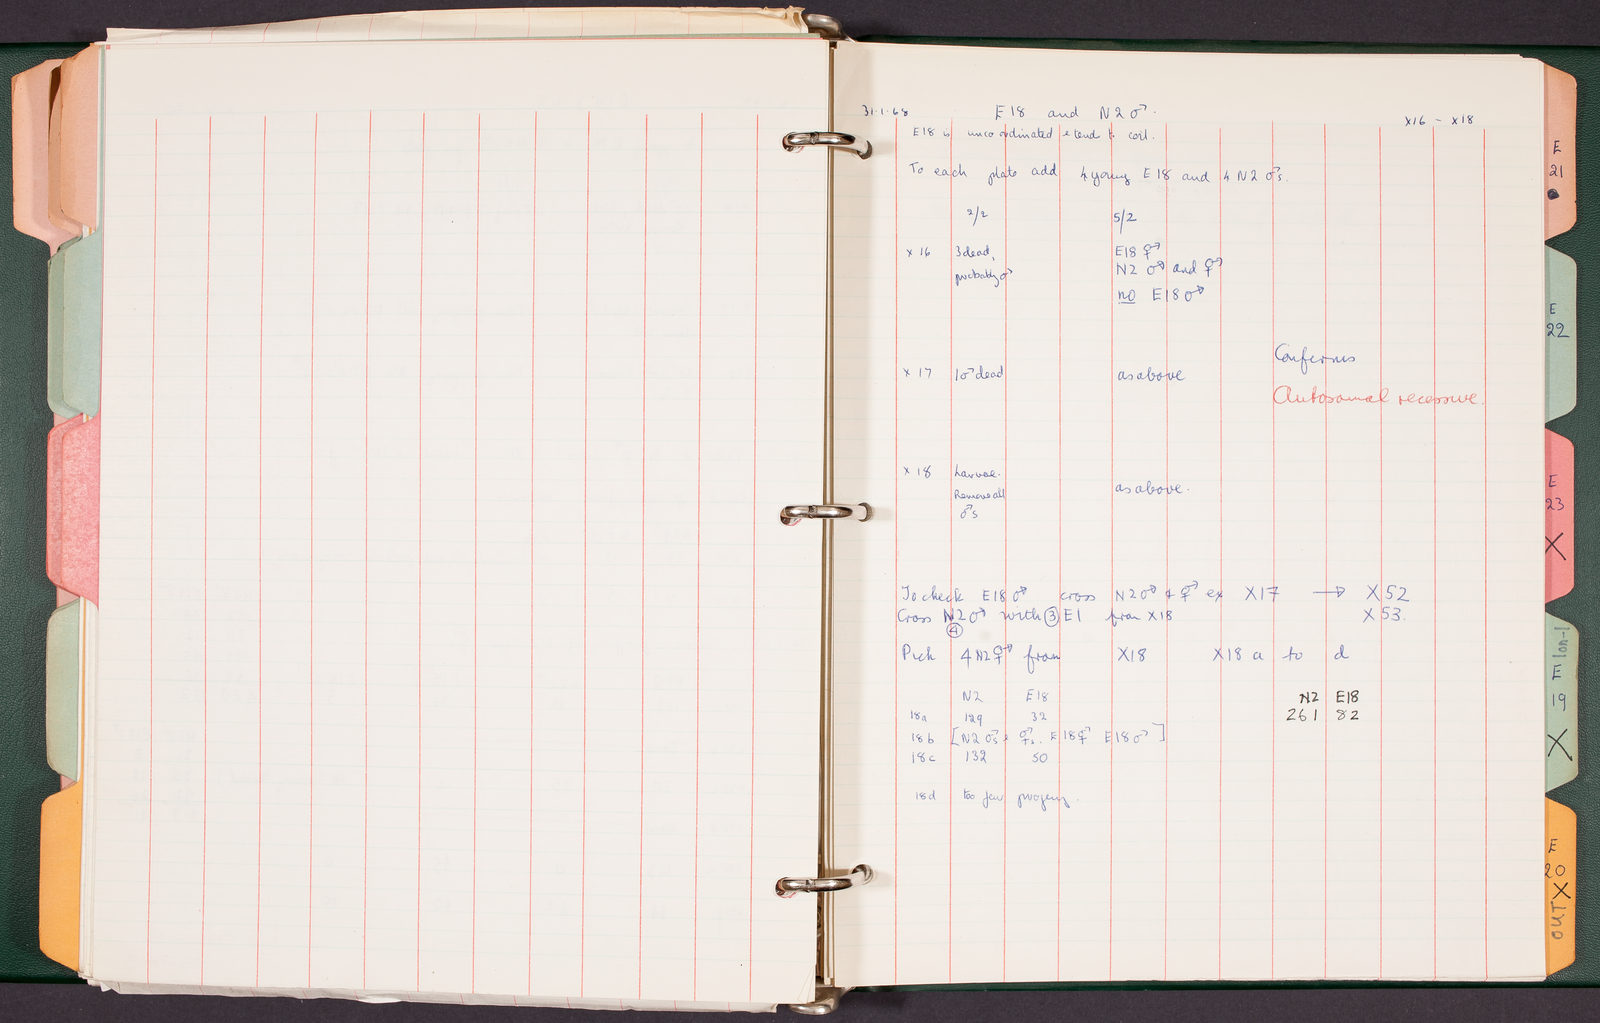 31·1·68 E18 and N2 ♂.
X16 - X18
E18 is uncoordinated & tends to coil.
To each plate add 4 young E18 and 4 N2 ♂s.
2/2 5/2
X 16 3 dead, E18 ⚥
probably ♂ N2 ♂ and ⚥
no E18 ♂
Confirms
X 17 1♂ dead as above
Autosomal recessive.
X 18 Larvae.
Remove all as above.
♂s
To check E18 ♂ cross N2 ♂ & ⚥ ex X17 → X52
Cross N2 ♂ with ③ E1 from X18 X53.
④
Pick 4 N2 ⚥ from X18 X18 a to d
N2 E18 N2 E18
18a 129 32 261 82
18b [N2 ♂s & ⚥s. E18 ⚥ E18 ♂]
18c 132 50
18d too few progeny.
E
21
E
22
E
23
X
lon-1
E
19
X
E
20
X
OUT